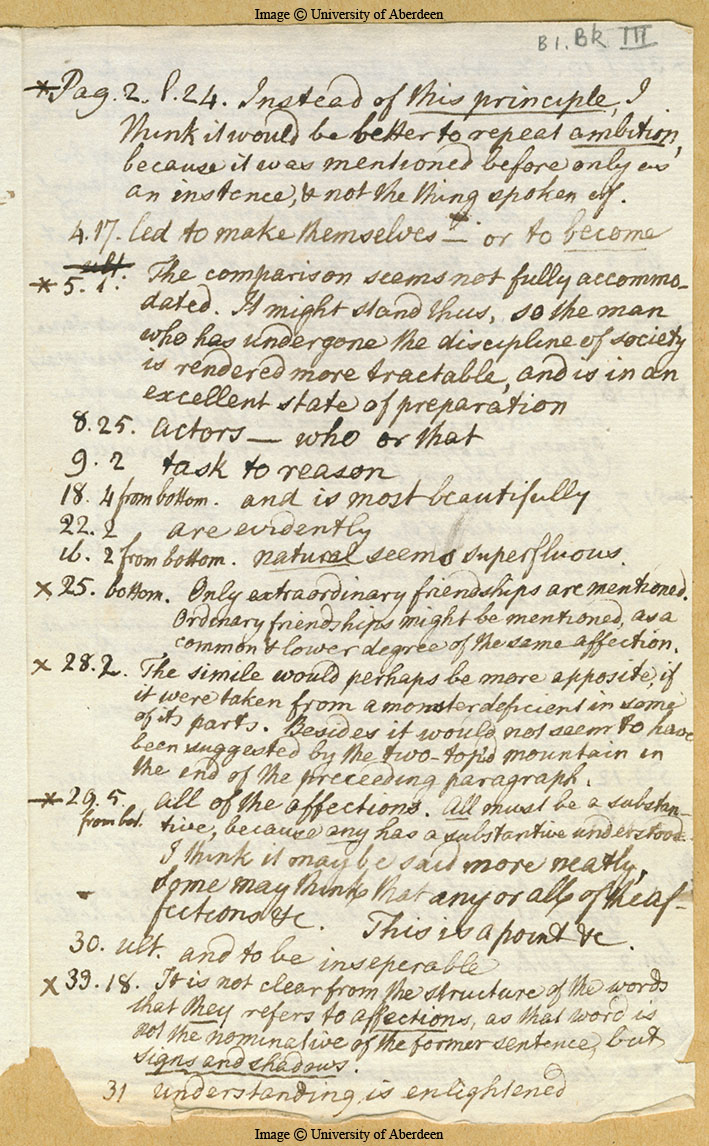 Image © University of Aberdeen
B1. Bk III
*Pag. 2. l. 24. Instead of this principle, I
think it would be better to repeat ambition,
because it was mentioned before only as
an instence, & not the thing spoken of.
4. 17. led to make themselves — or to become
* 5. 1. ult. The comparison seems not fully accommo-
dated. It might stand thus, so the man
who has undergone the discipline of society
is rendered more tractable, and is in an
excellent state of preparation
8. 25. actors — who or that
9. 2 task to reason
18. 4 from bottom. and is most beautifully
22. 2 are evidently
ib. 2 from bottom. natural seems superfluous.
x 25. bottom. Only extraordinary friendships are mentioned.
Ordinary friendships might be mentioned, as a
common & lower degree of the same affection.
x 28. 2. The simile would perhaps be more apposite, if
it were taken from a monster deficient in some
of its parts. Besides it would not seem to have
been suggested by the two-top'd mountain in
the end of the preceeding paragraph.
* 29. 5. all of the affections. All must be a substan-
from bot. tive, because any has a substantive understood.
I think it may be said more neatly,
Some may think that any or all of the af-
fections &c. This is a point &c.
30. ult. and to be inseperable
x 33. 18. It is not clear from the structure of the words
that they refers to affections, as that word is
not the nominative of the former sentence, but
signs and shadows.
31 understanding is enlightened
Image © University of Aberdeen